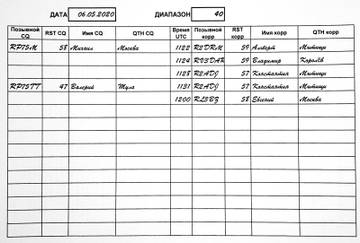 ДАТА 06.05.2020 ДИАПАЗОН 40
Позывной CQ RST CQ Имя CQ QTH CQ Время UTC Позывной корр RST корр Имя корр QTH корр
RP75M 58 Михаил Москва 1122 R2DRM 59 Альберт Мытищи
1124 RV3DAR 59 Владимир Королёв
1128 R2ADJ 57 Константин Мытищи
RP75TT 47 Валерий Тула 1131 R2ADJ 57 Константин Мытищи
1200 RL3BZ 58 Евгений Москва